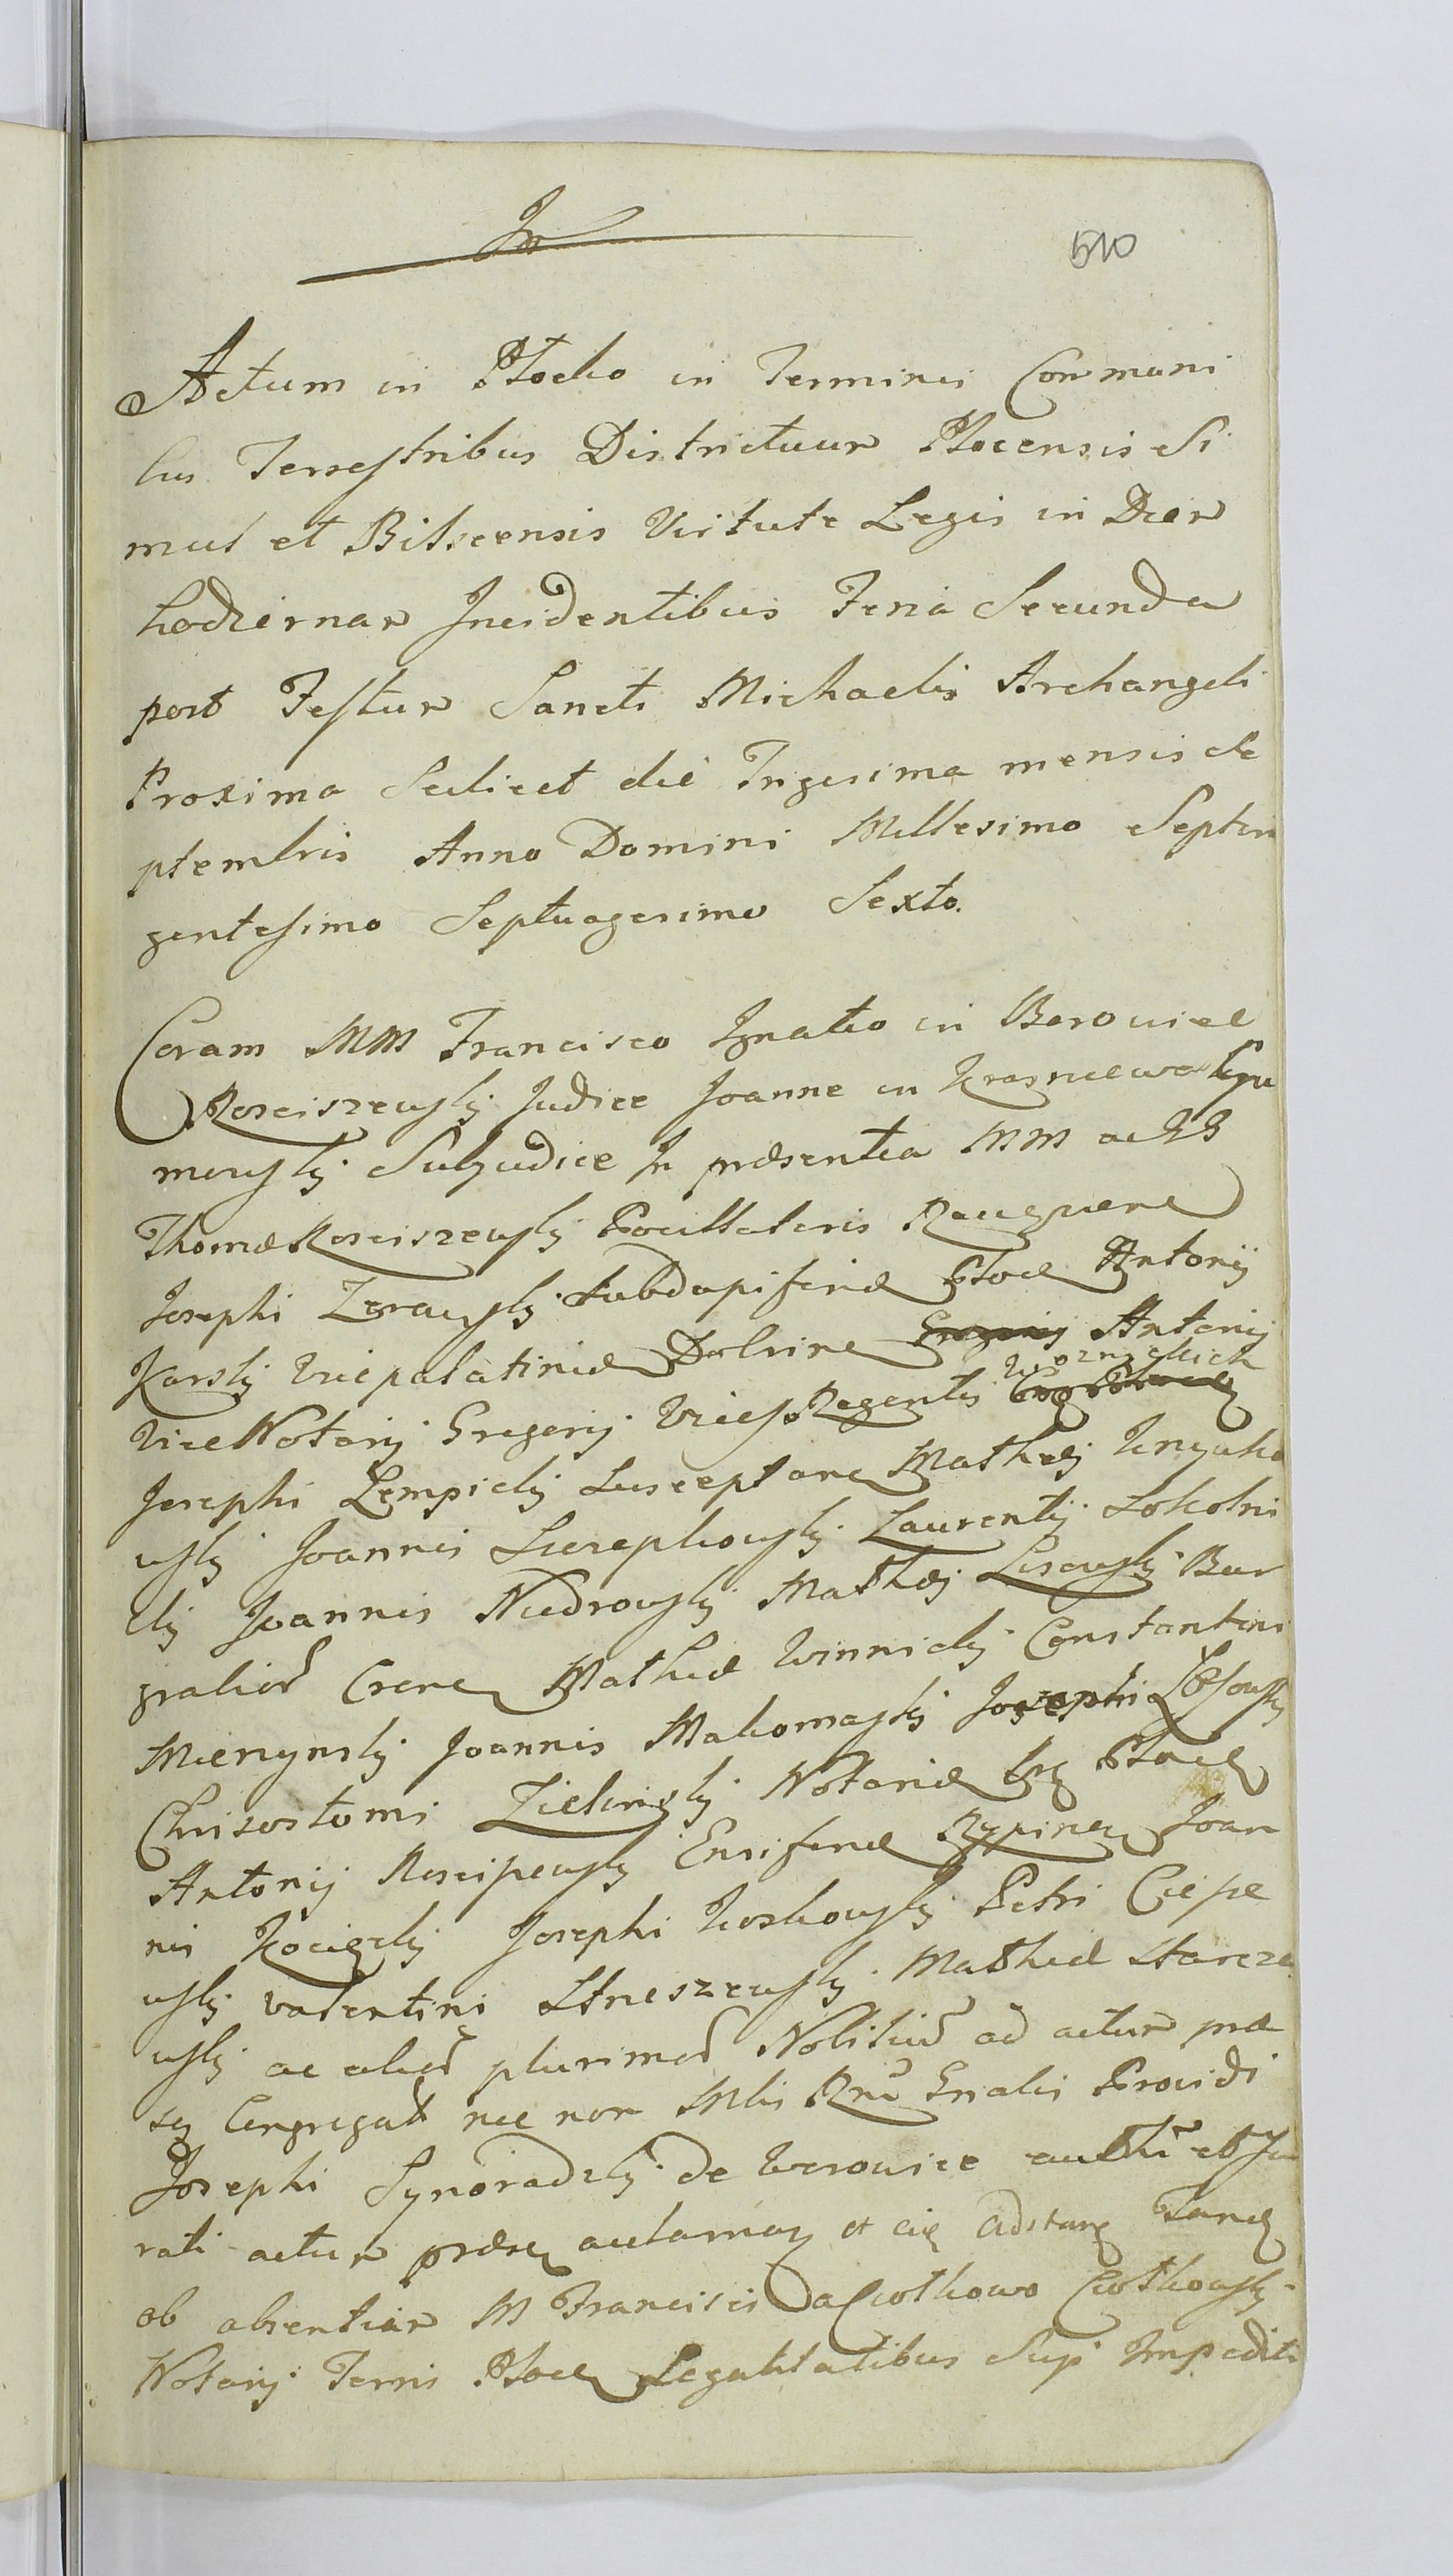 In
510
Actum in Plocko in Terminis Communi
bus Terrestribus Districtuum Plocensis Si
mul et Bilscensis Virtute Legis in Diem
hodiernam Incidentibus Feria Secunda
post Festum Sancti Michaelis Archangeli
Proxima Scilicet die Trigesima mensis Se
ptembris Anno Domini Millesimo Septin
gentesimo Septuagesimo Sexto.
Coram MM Francisco Ignatio in Borowice
Rosciszewsky Judice Joanne in Krasniewo
mowsky Subjudice In præsentia MM ac GG
Thomæ Rosciszewsky Pocillatoris
Josephi Zorawsky Subdapiferi Ploce Antonij
Karsky Vicepalatini Dobrine Gregorij Antonij
Woznickich
ViceNotarij Gregorij Vices Regentis
Josephi Lempicky Susceptane Mathæj
wsky Joannis Laurentij Sokolni
cky Joannis Niedrowsky Mathæj Lisowsky Bur
grabior Crane Mathiæ Winnicky Constantini
Mierzynsky Joannis Makomasky Josephi
Chrisostomi Zielinsky Notarij Ploce
Antonij Rosciszewsky Ensiferi Rypine Joan
nis Kocięcky Josephi Koskowsky Petri
wsky Valentini Strzeszewsky Mathiæ
wsky ac alior plurimor Nobiliu ad actum præ
Congregat nec non Mlis Rni Gnalis Providi
Josephi Synoradzky de Werowice
rati actum præse et Adstane Tande
ob absentiam M Francisci a Czotkowo Czotkowsky
Notarij Terris Ploce Legalitatibus Impediti